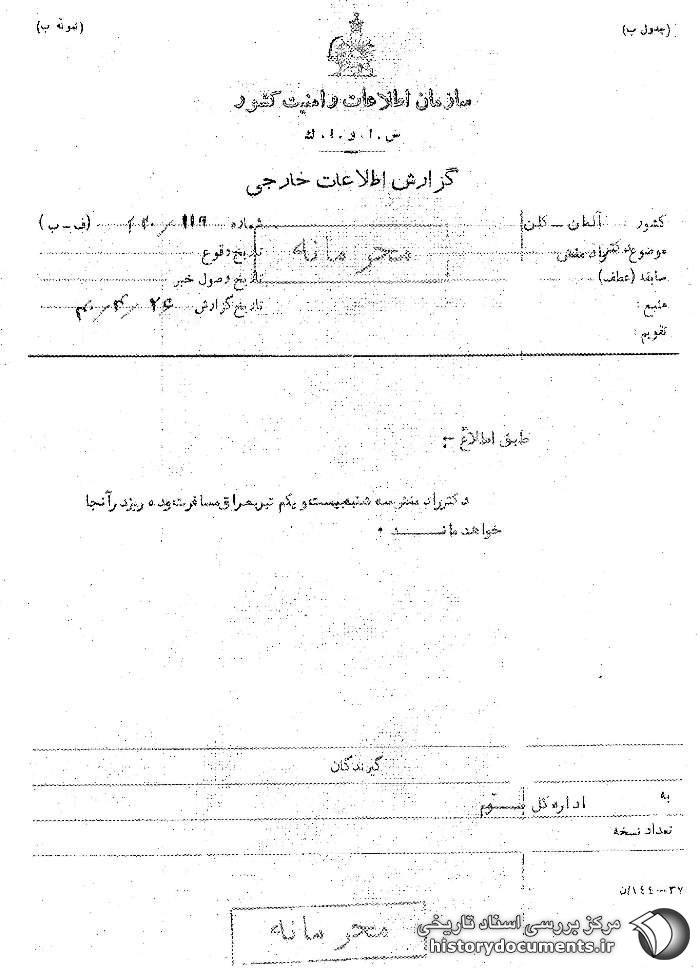 (جدول ب)
(نمونه ب)
سازمان اطلاعات و امنیت کشور
س.ا.و.ا.ك
گزارش اطلاعات خارجی
کشور آلمان - کلن
شماره ۱۱۹ (ف-ب)
موضوع دکتر راد منش
تاریخ وقوع
محرمانه
سابقه (عطف)
تاریخ وصول خبر
منبع :
تاریخ گزارش ۲۶
تقویم :
طبق اطلاع :-
دکتر راد منش سه شنبه بیست و یکم تیر بعراق مسافرت نموده ریزد رآنجا
خواهد ماند .
گیرندگان
به اداره کل سوم
تعداد نسخه
محرمانه
مرکز بررسی اسناد تاریخی
historydocuments.ir